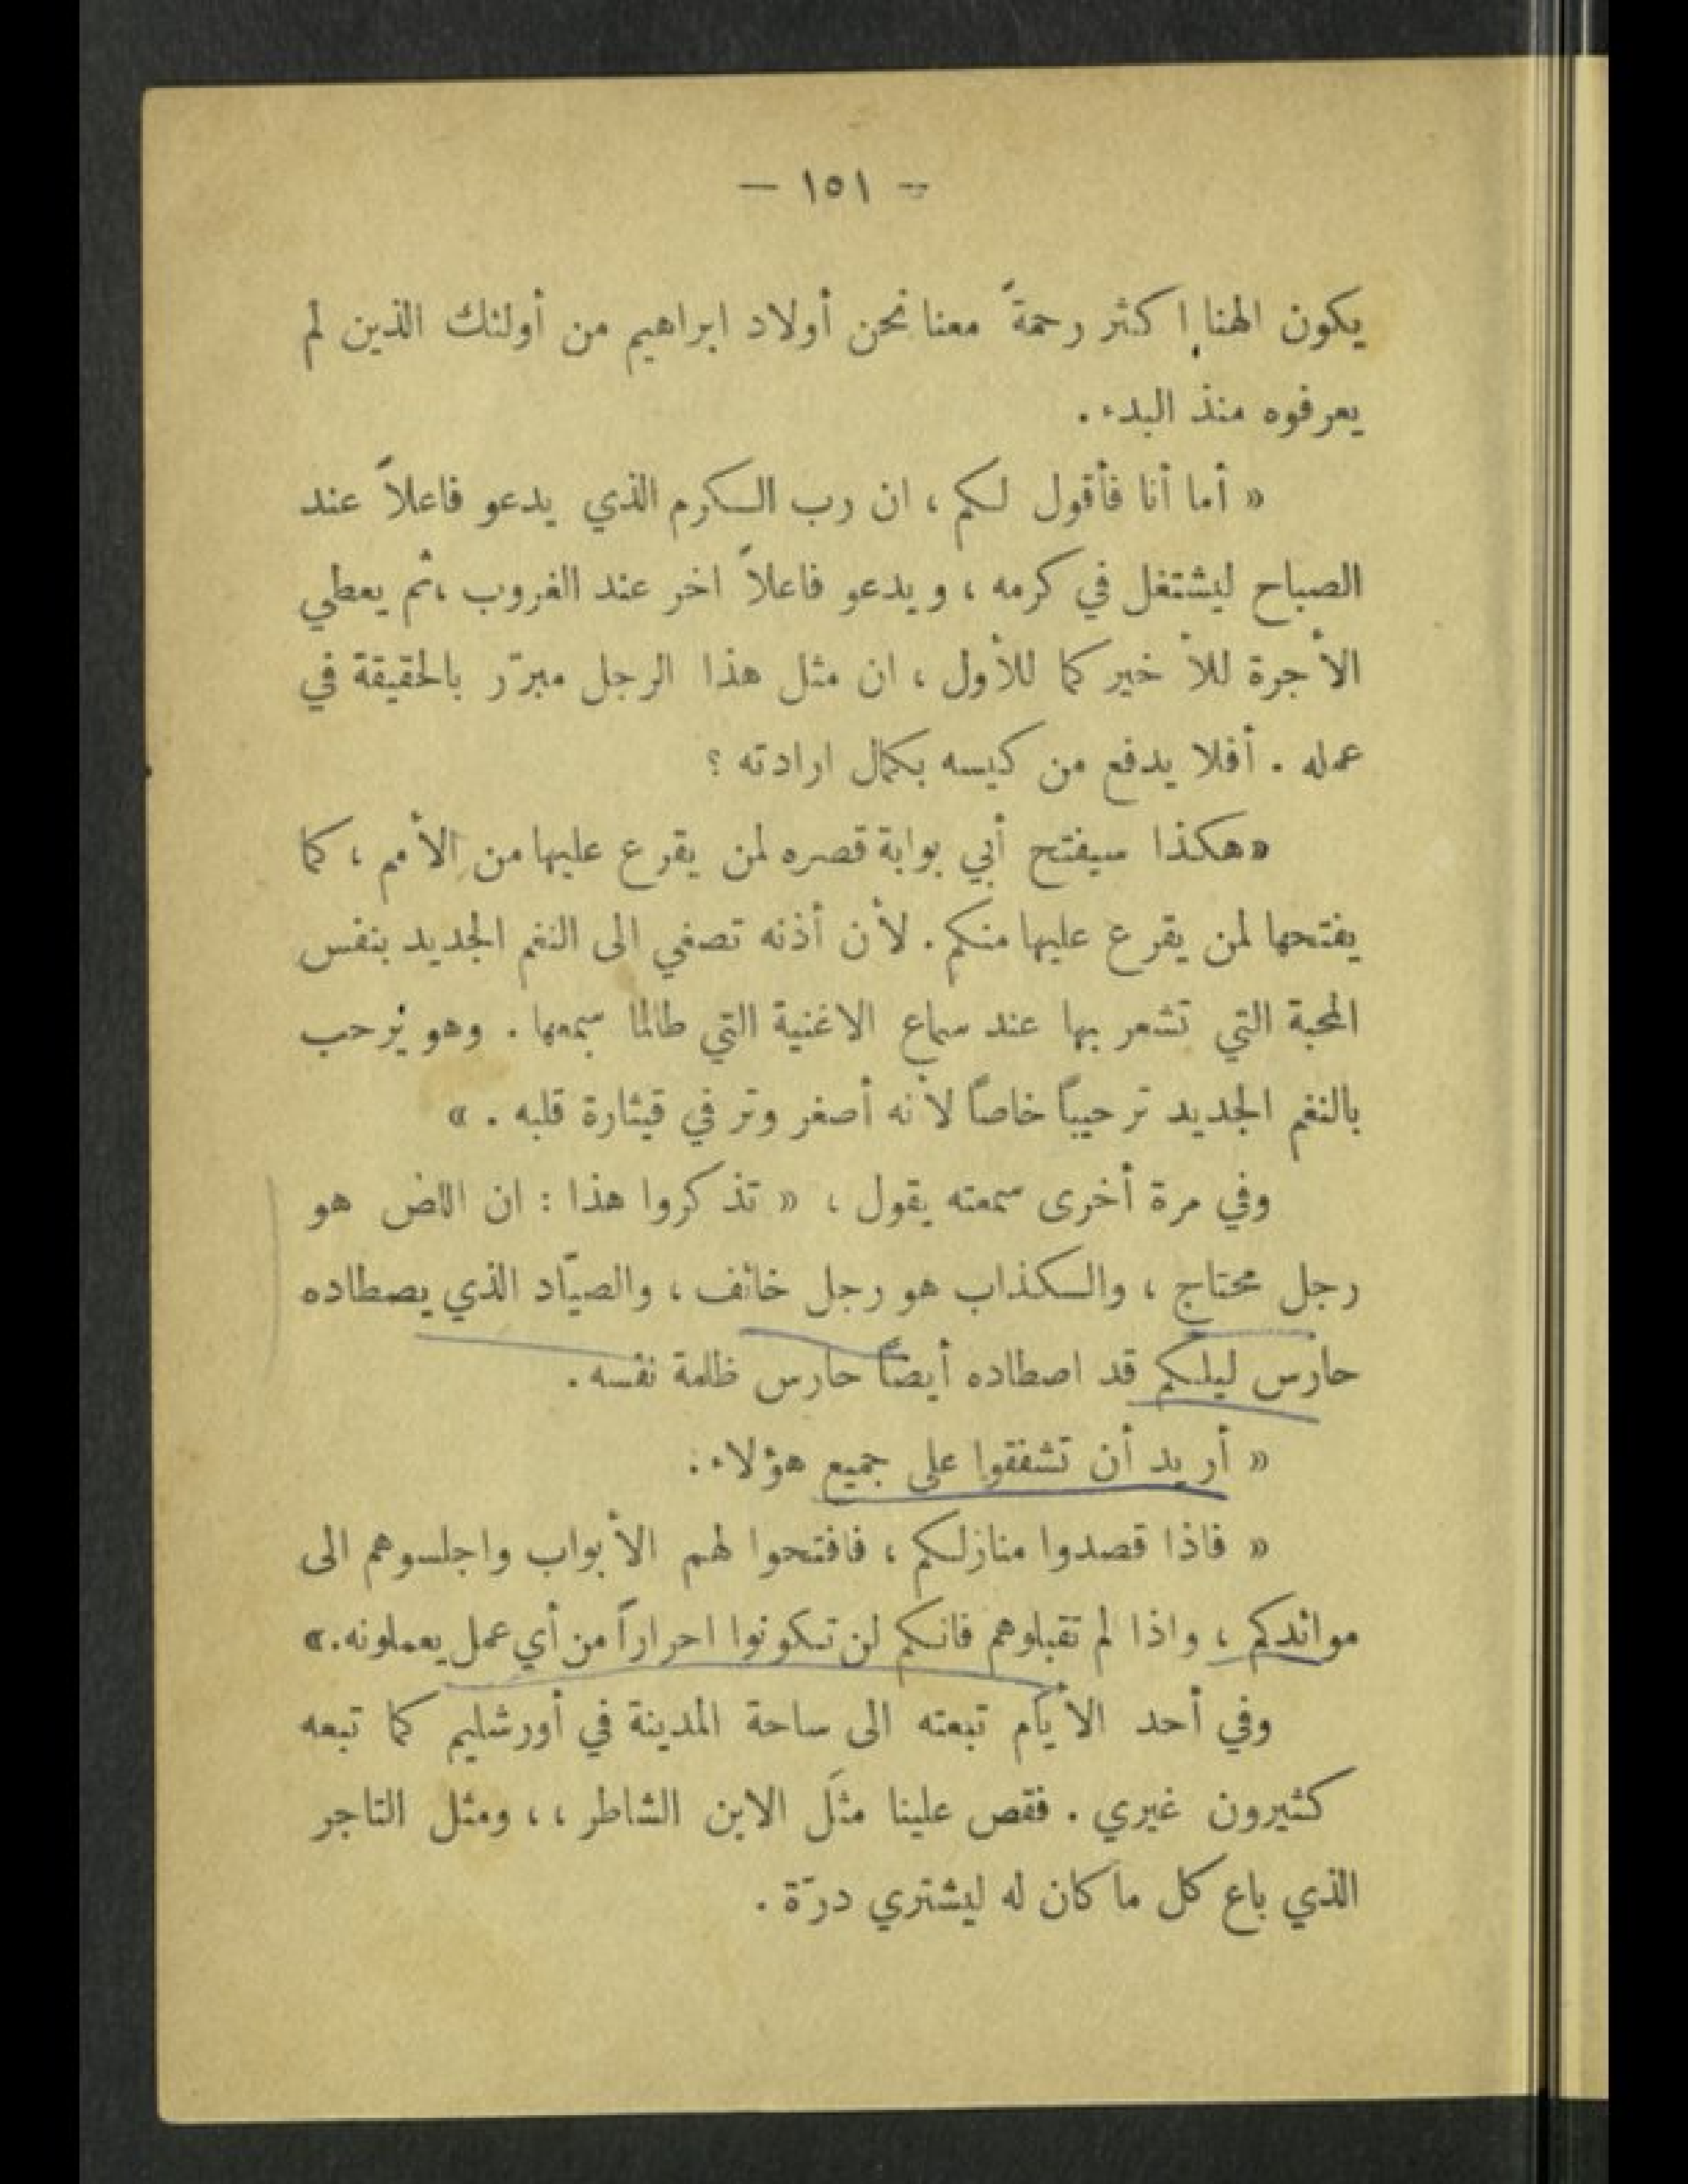 — ١٥١ —
يكون الهنا اكثر رحمةً معنا نحن أولاد ابراهيم من أولئك الذين لم
يعرفوه منذ البدء .
« أما أنا فأقول لكم ، ان رب الكرم الذي يدعو فاعلاً عند
الصباح ليشتغل في كرمه ، ويدعو فاعلاً اخر عند الغروب ، ثم يعطي
الأجرة للأخير كما للأول ، ان مثل هذا الرجل مبرّر بالحقيقة في
عمله . أفلا يدفع من كيسه بكمال ارادته ؟
« هكذا سيفتح أبي بوابة قصره لمن يقرع عليها من الأمم ، كما
يفتحها لمن يقرع عليها منكم . لأن أذنه تصغي الى النغم الجديد بنفس
المحبة التي تشعر بها عند سماع الاغنية التي طالما سمعها . وهو يُرحب
بالنغم الجديد ترحيباً خاصاً لأنه أصغر وتر في قيثارة قلبه . »
وفي مرة أخرى سمعته يقول ، « تذكروا هذا : ان اللص هو
رجل محتاج ، والكذاب هو رجل خائف ، والصيّاد الذي يصطاده
حارس ليلكم قد اصطاده أيضاً حارس ظلمة نفسه .
« أريد أن تشفقوا على جميع هؤلاء .
« فاذا قصدوا منازلكم ، فافتحوا لهم الأبواب واجلسوهم الى
موائدكم ، واذا لم تقبلوهم فانكم لن تكونوا احراراً من أي عمل يعملونه . »
وفي أحد الأيام تبعته الى ساحة المدينة في أورشليم كما تبعه
كثيرون غيري . فقص علينا مثَل الابن الشاطر ، ، ومثل التاجر
الذي باع كل ما كان له ليشتري درّة .